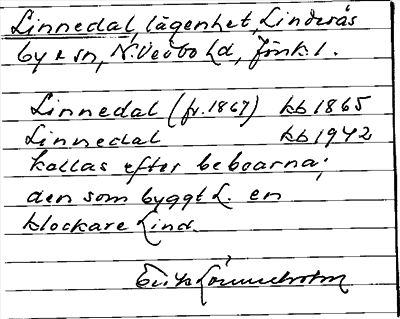 Linnedal, lägenhet, Linderås
by o sn, N. Vedbo hd, Jönk. l.
Linnedal (fr. 1867) kb 1865
Linnedal kb 1942
kallas efter beboarna;
den som byggt L. en
klockare Lind.
Erik